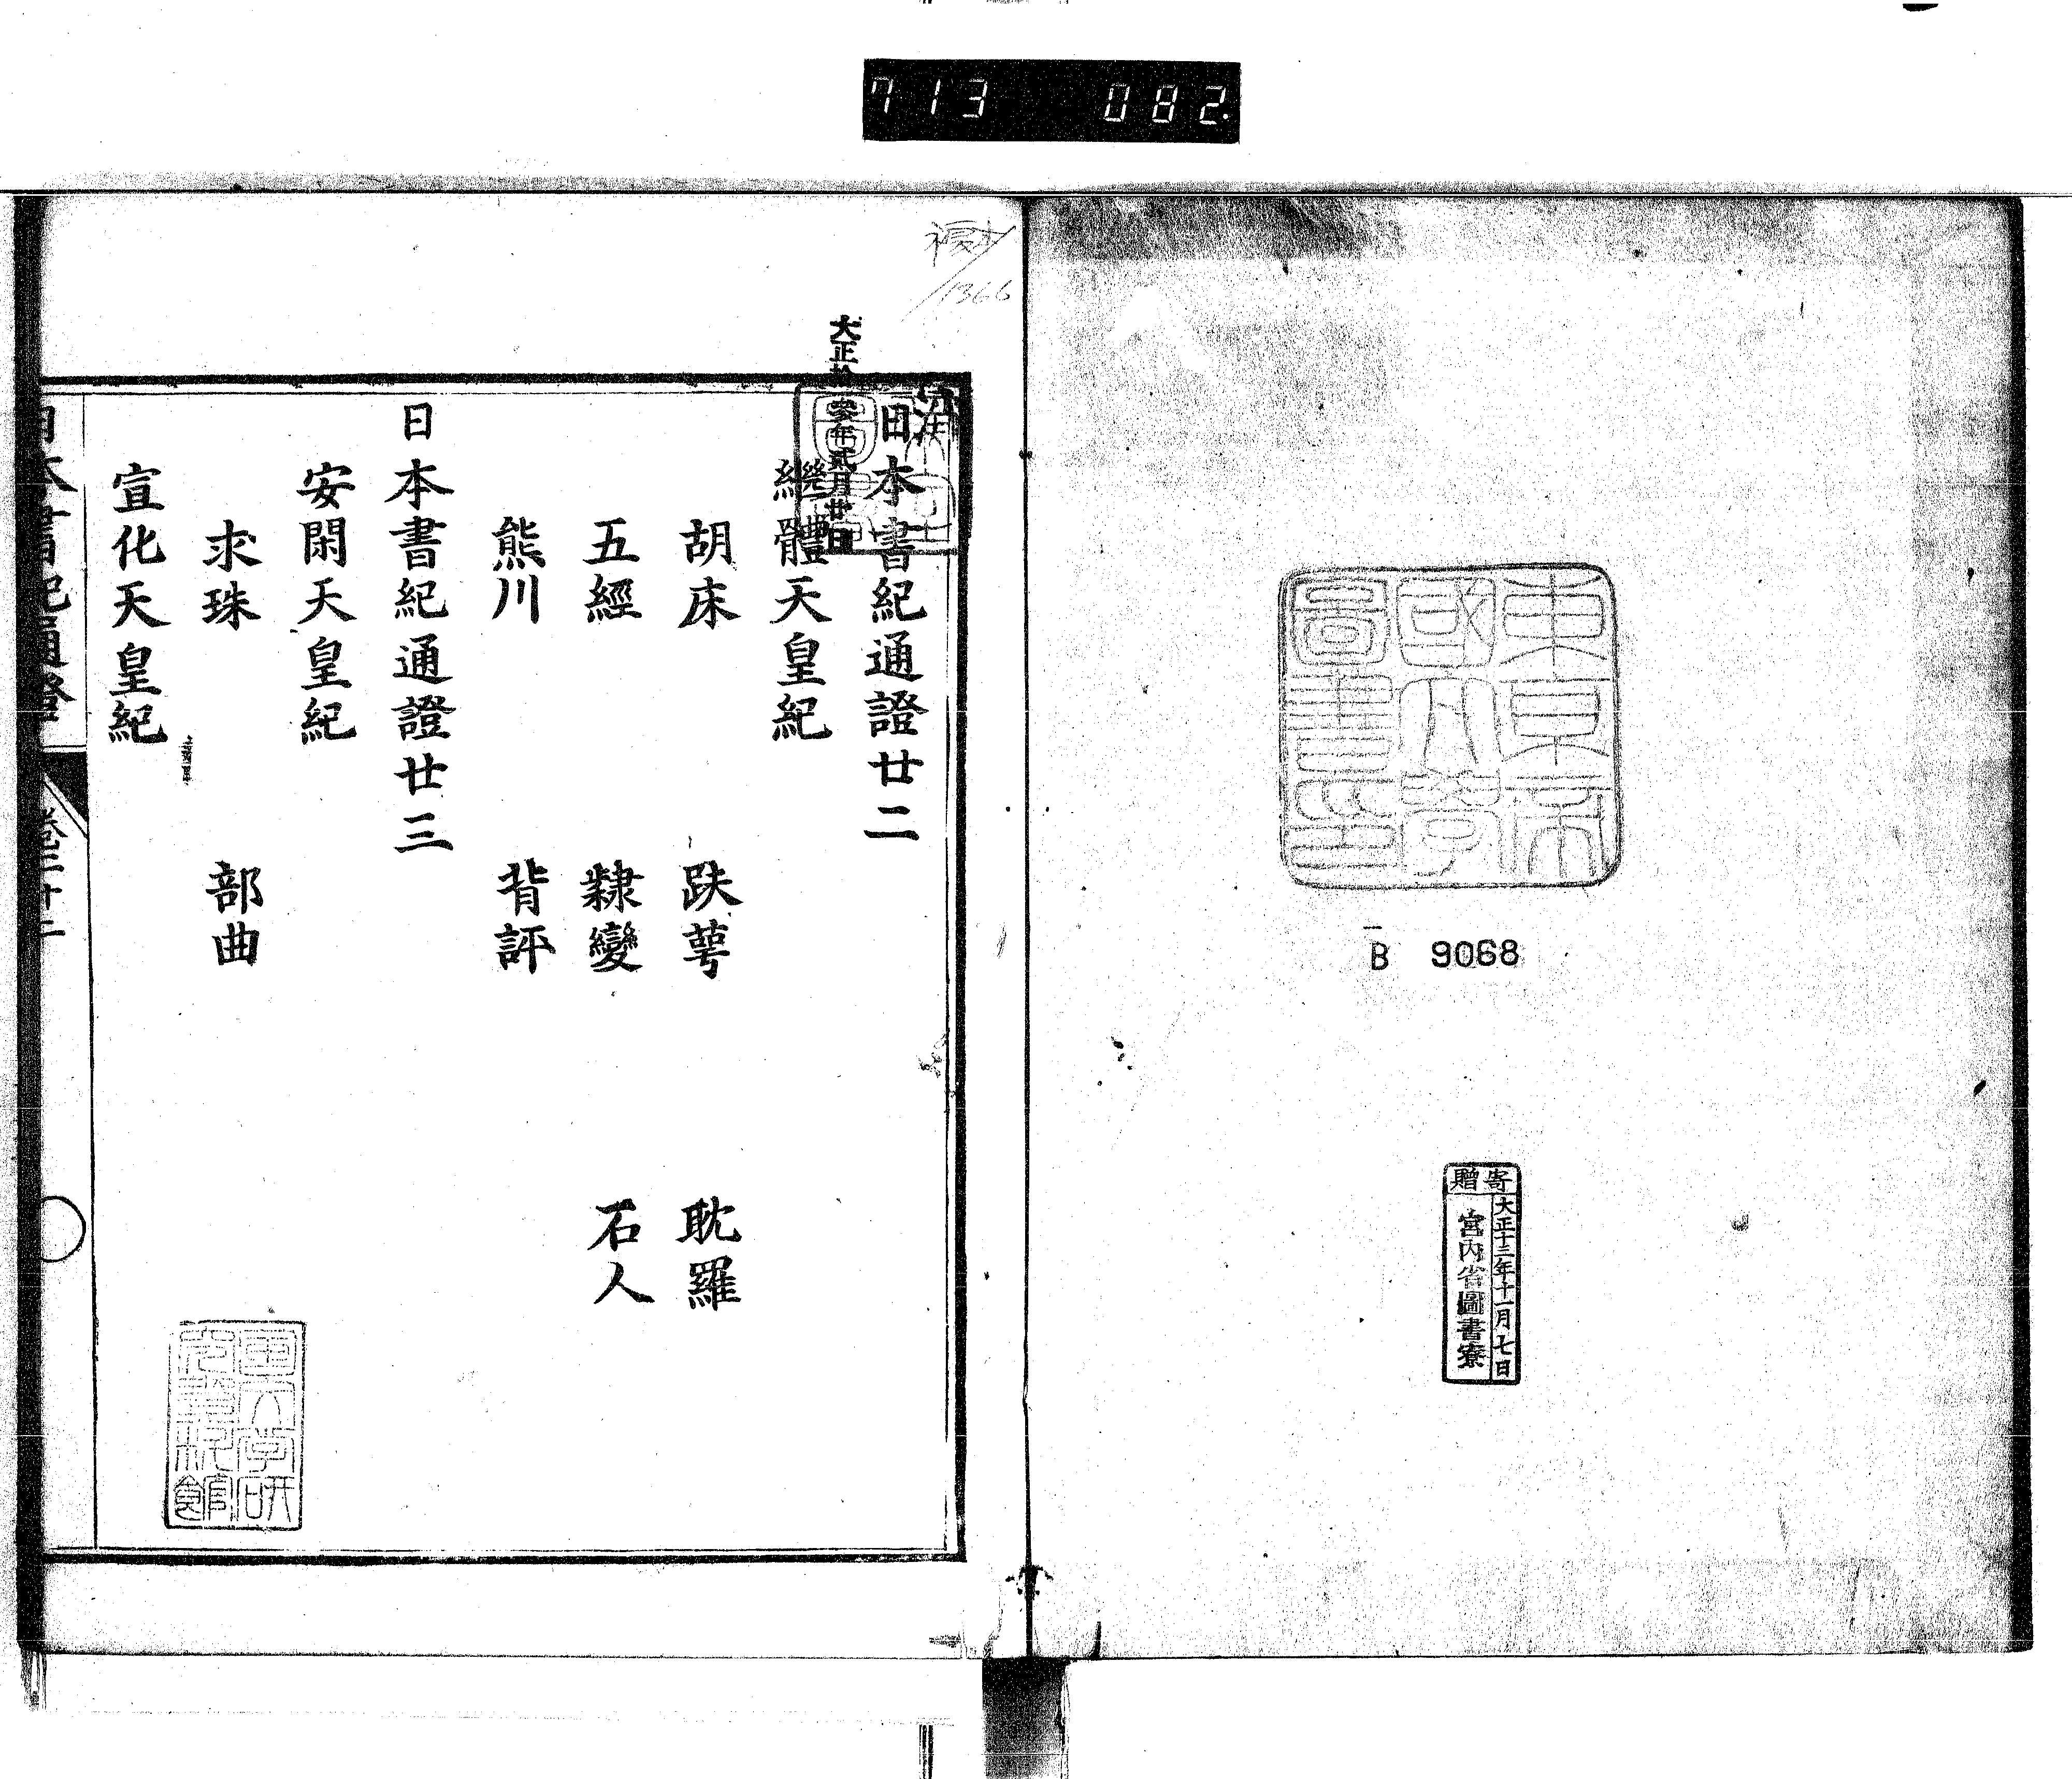 713 082.
東京帝
國大學
圖書印
B 9068
寄贈
大正十三年十一月七日
宮内省圖書寮
複本
1366
大正拾參年貳月廿日
日本書紀通證廿二
繼體天皇紀
胡床 趺萼 耽羅
五經 隸變 石人
熊川 背評
日本書紀通證廿三
安閑天皇紀
求珠 部曲
宣化天皇紀
日本書紀通證 卷二十二